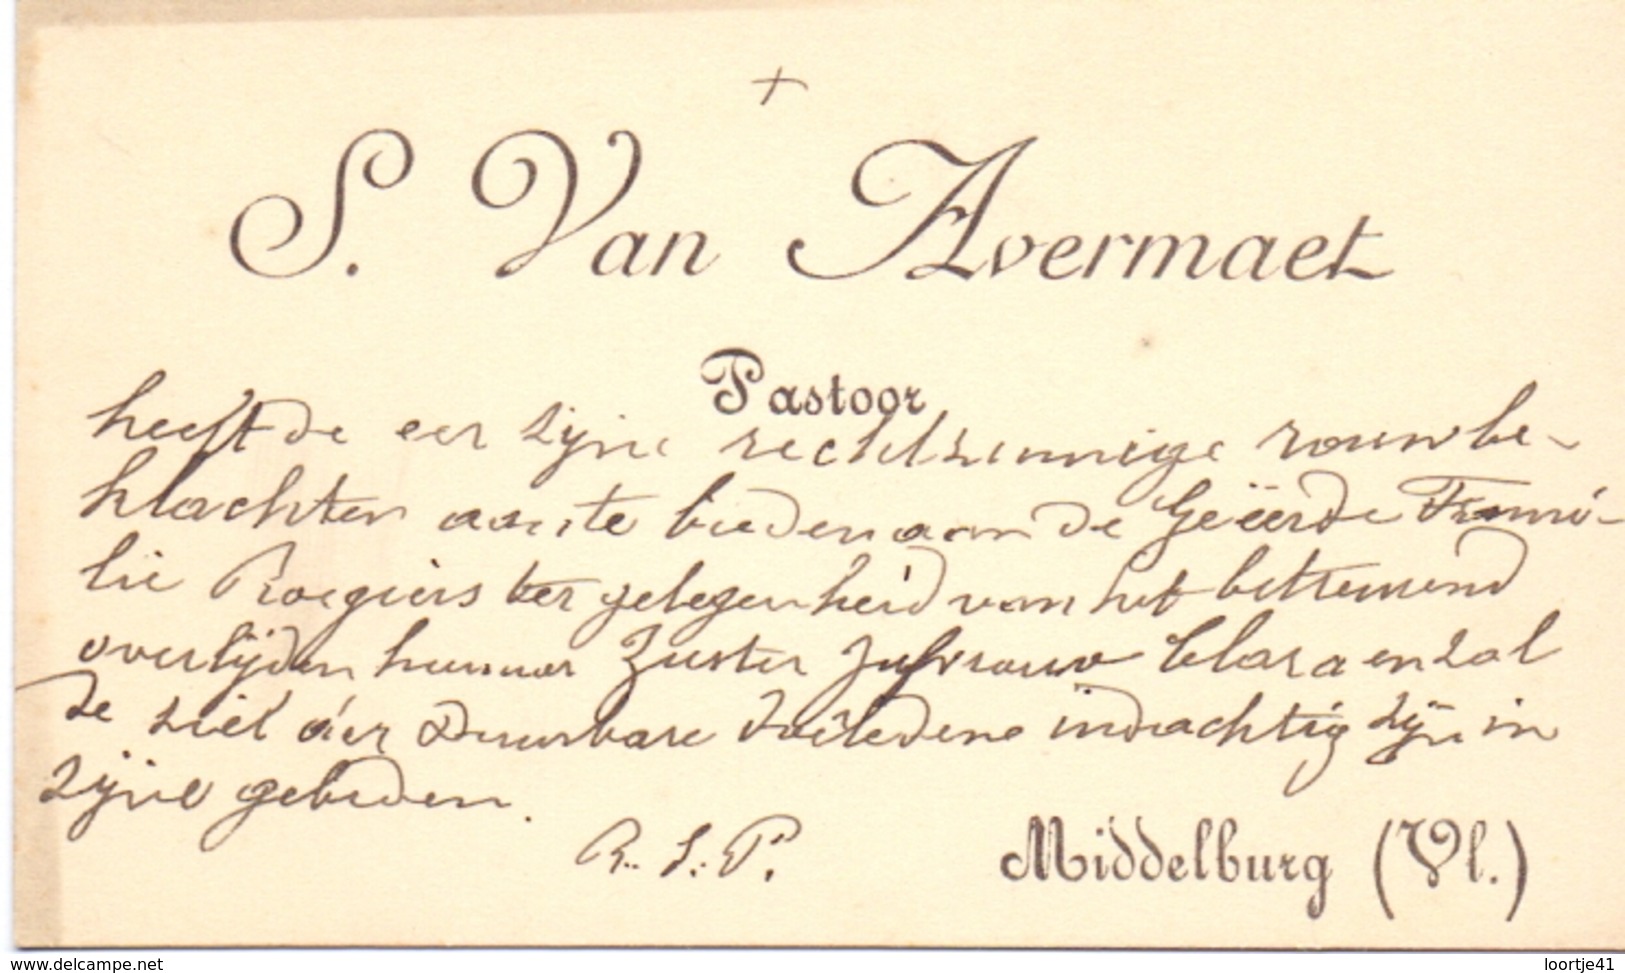 +
S. Van Avermaet
Pastoor
heeft de eer zijne rechtzinnige rouwbe-
klachten aan te bieden aan de Geëerde Fami-
lie Roegiers ter gelegenheid van het betreurend
overlijden hunner Zuster Jufvrouw Clara en zal
de ziel der Duurbare Overledene indachtig zijn in
zijne gebeden.
R. I. P.
Middelburg (Vl.)
www.delcampe.net
loortje41